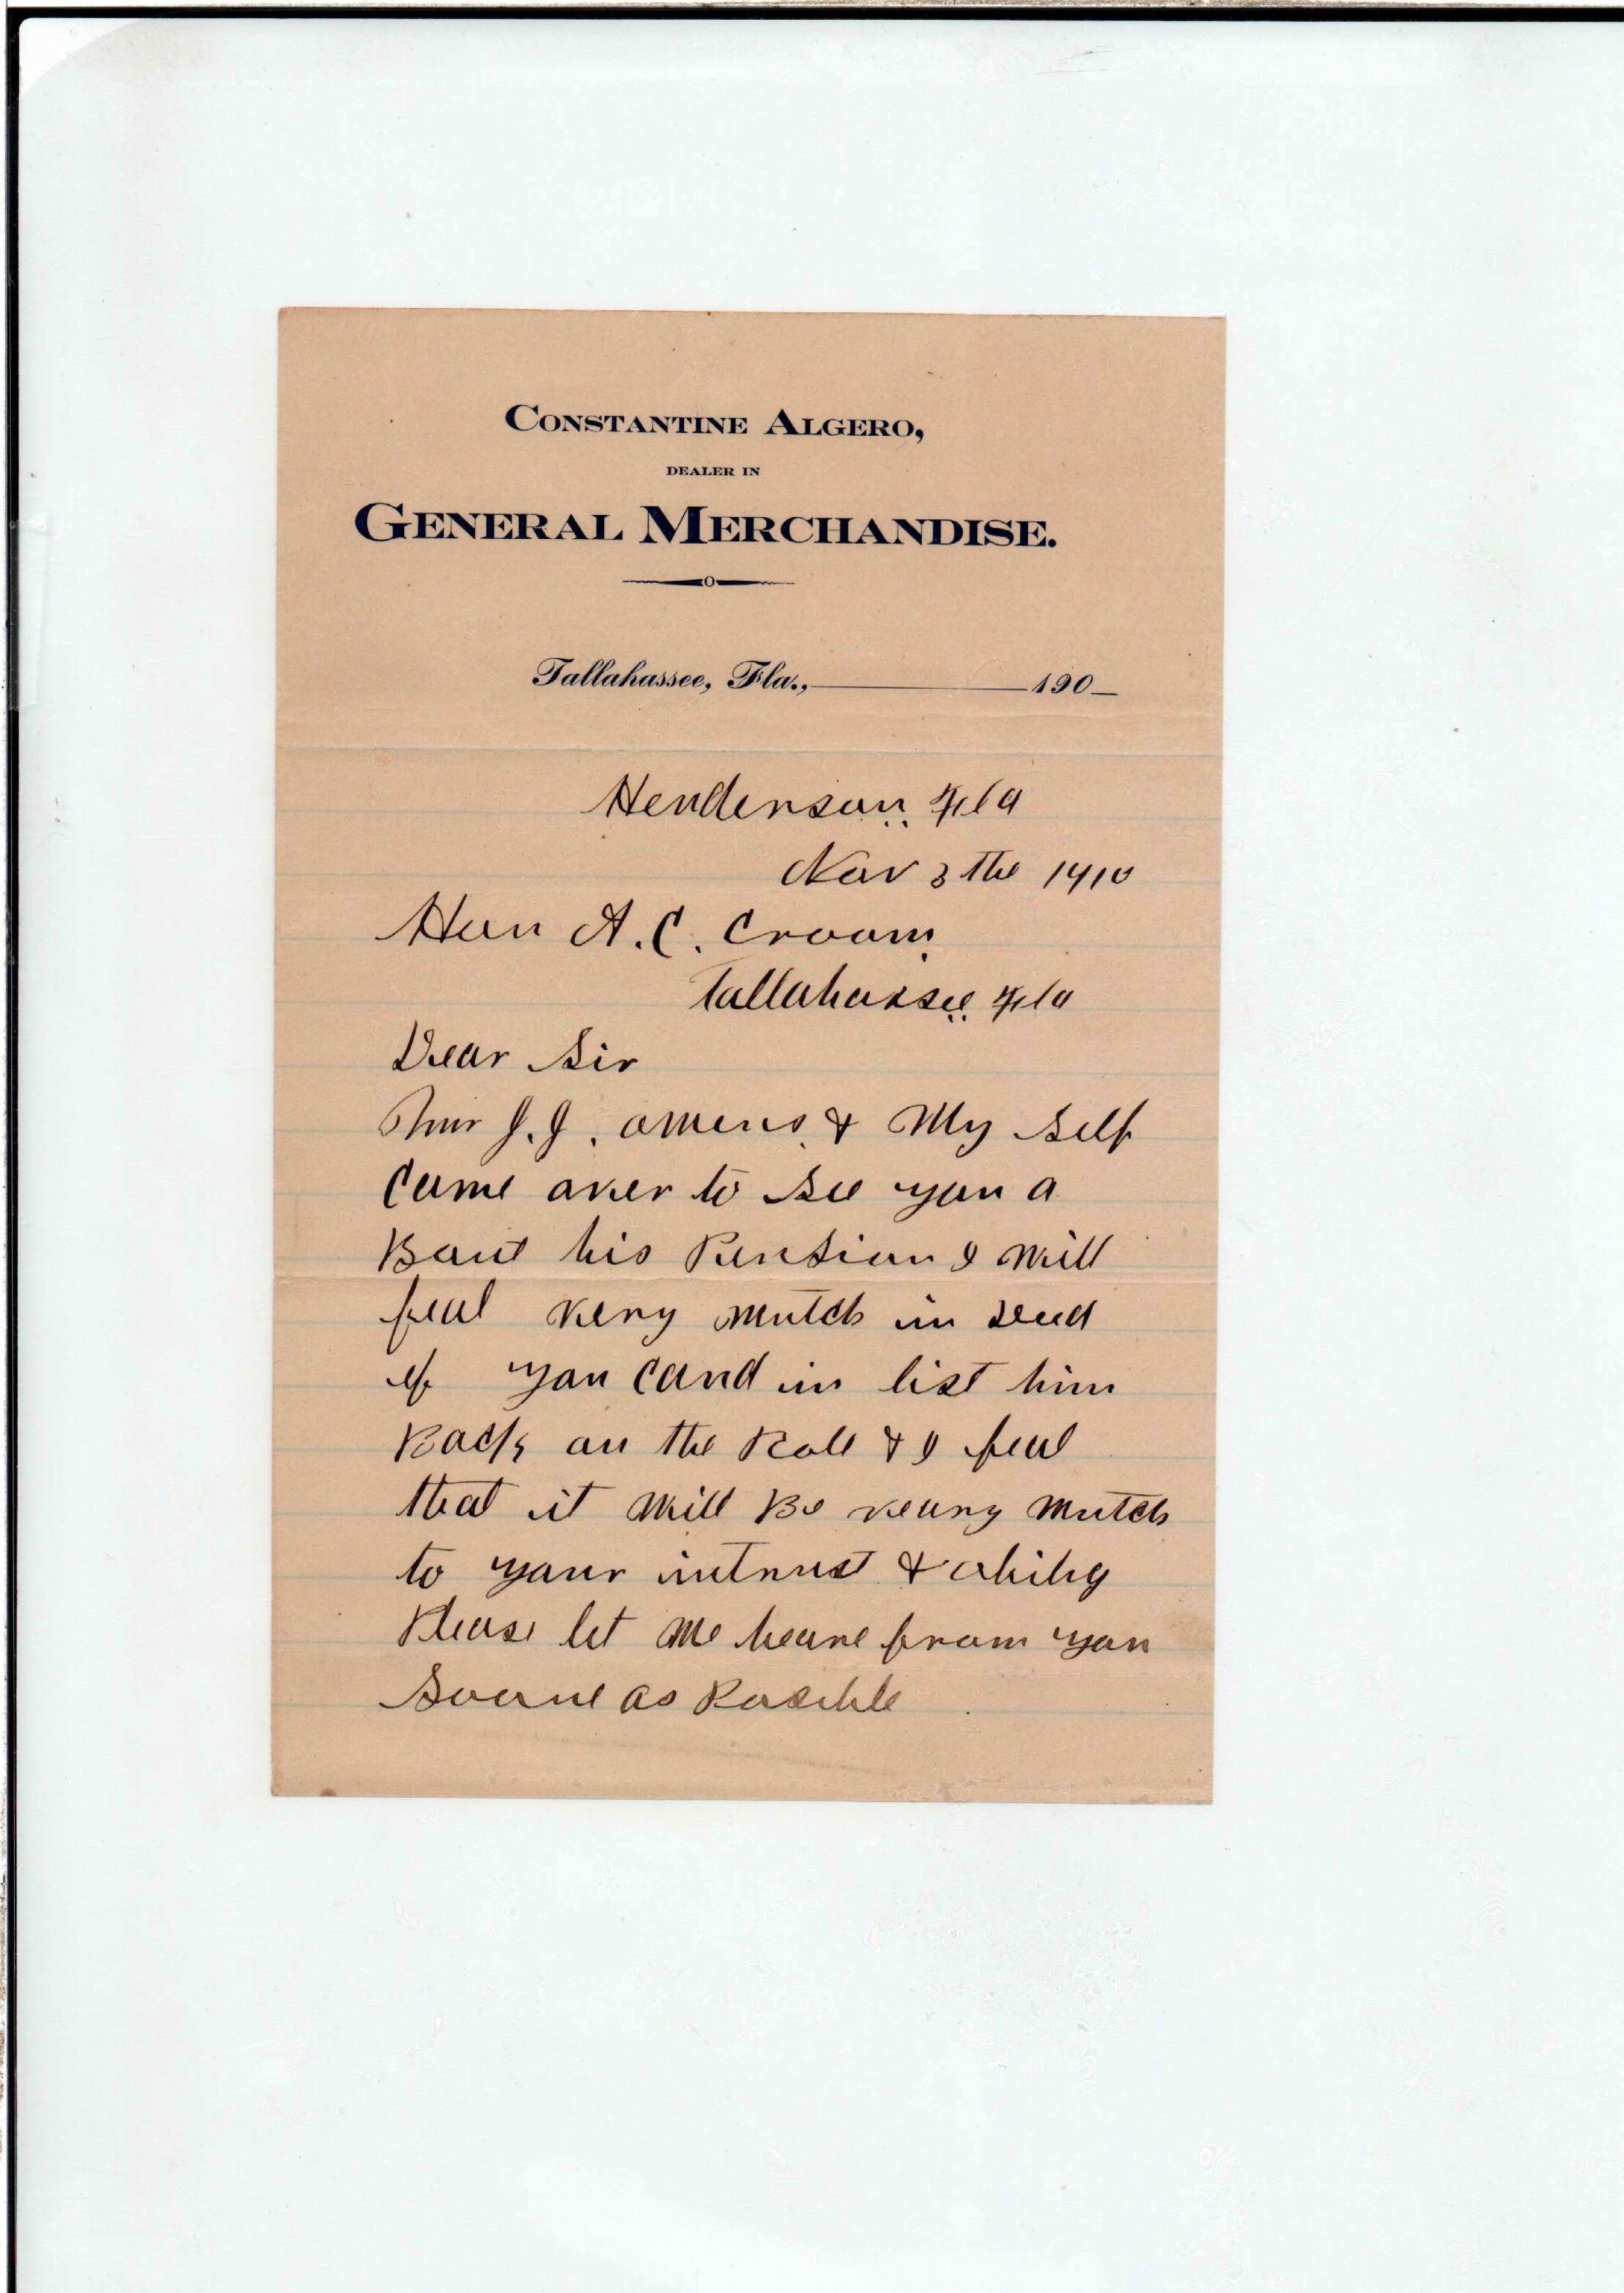 CONSTANTINE ALGERO,
DEALER IN
GENERAL MERCHANDISE.
Tallahassee, Fla., 190
Henderson Fla
Nov 3 the 1910
Hon A. C. Croom
Tallahassee Fla
Dear Sir
J. J. owens & My Self
Came over to See you a
Bout his Pension I will
feal very mutch in deed
if you Cand in list him
Back on the Role & I feal
that it Will Be veary mutch
to your intrust &
Please let Me heare from you
Soone as Posible